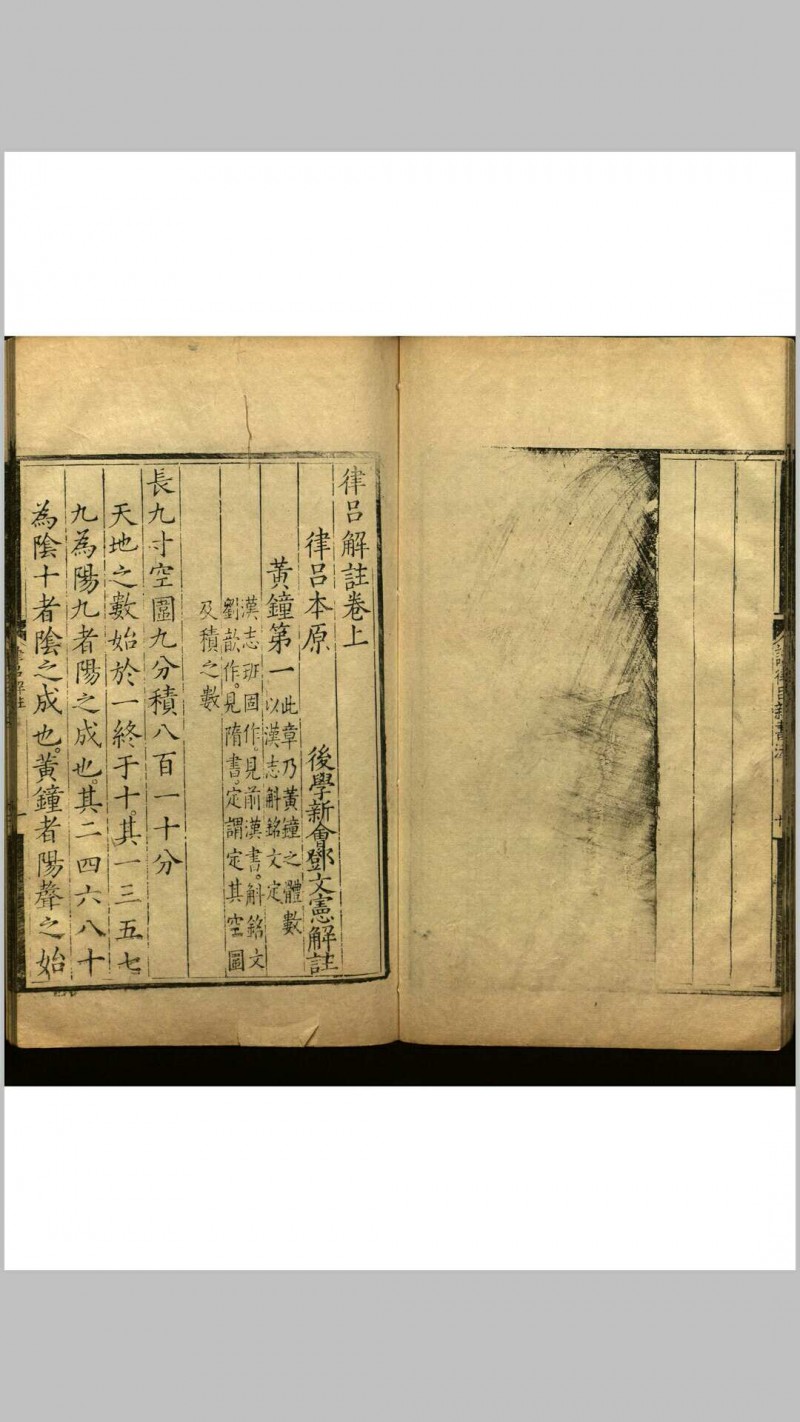 律呂解註卷上
律呂本原
後學新會鄧文憲解註
黃鐘第一
此章乃黃鐘之體數
以漢志斛銘文定
漢志班固作見前漢書。斛銘文
劉歆作。見隋書。定謂定其空圍
及積之數
長九寸空圍九分積八百一十分
天地之數始於一終于十。其一三五七
九為陽九者陽之成也。其二四六八十
為陰十者陰之成也。黃鐘者陽聲之始
律呂解註
一